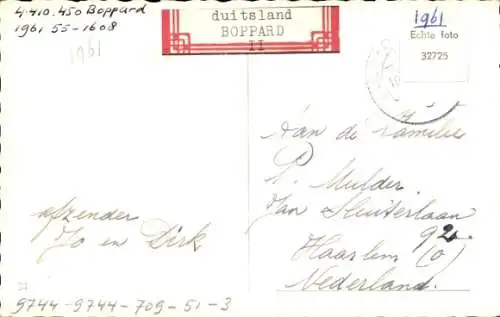 4.410.450 Boppard
1961 55-1608
1961
duitsland
BOPPARD
II
1961
Echte foto
32725
Aan de Familie
P. Mulder.
Jan Sluiterlaan
92
Haarlem (o)
Nederland.
afzender
Jo en Dirk
9744-9744-709-51-3